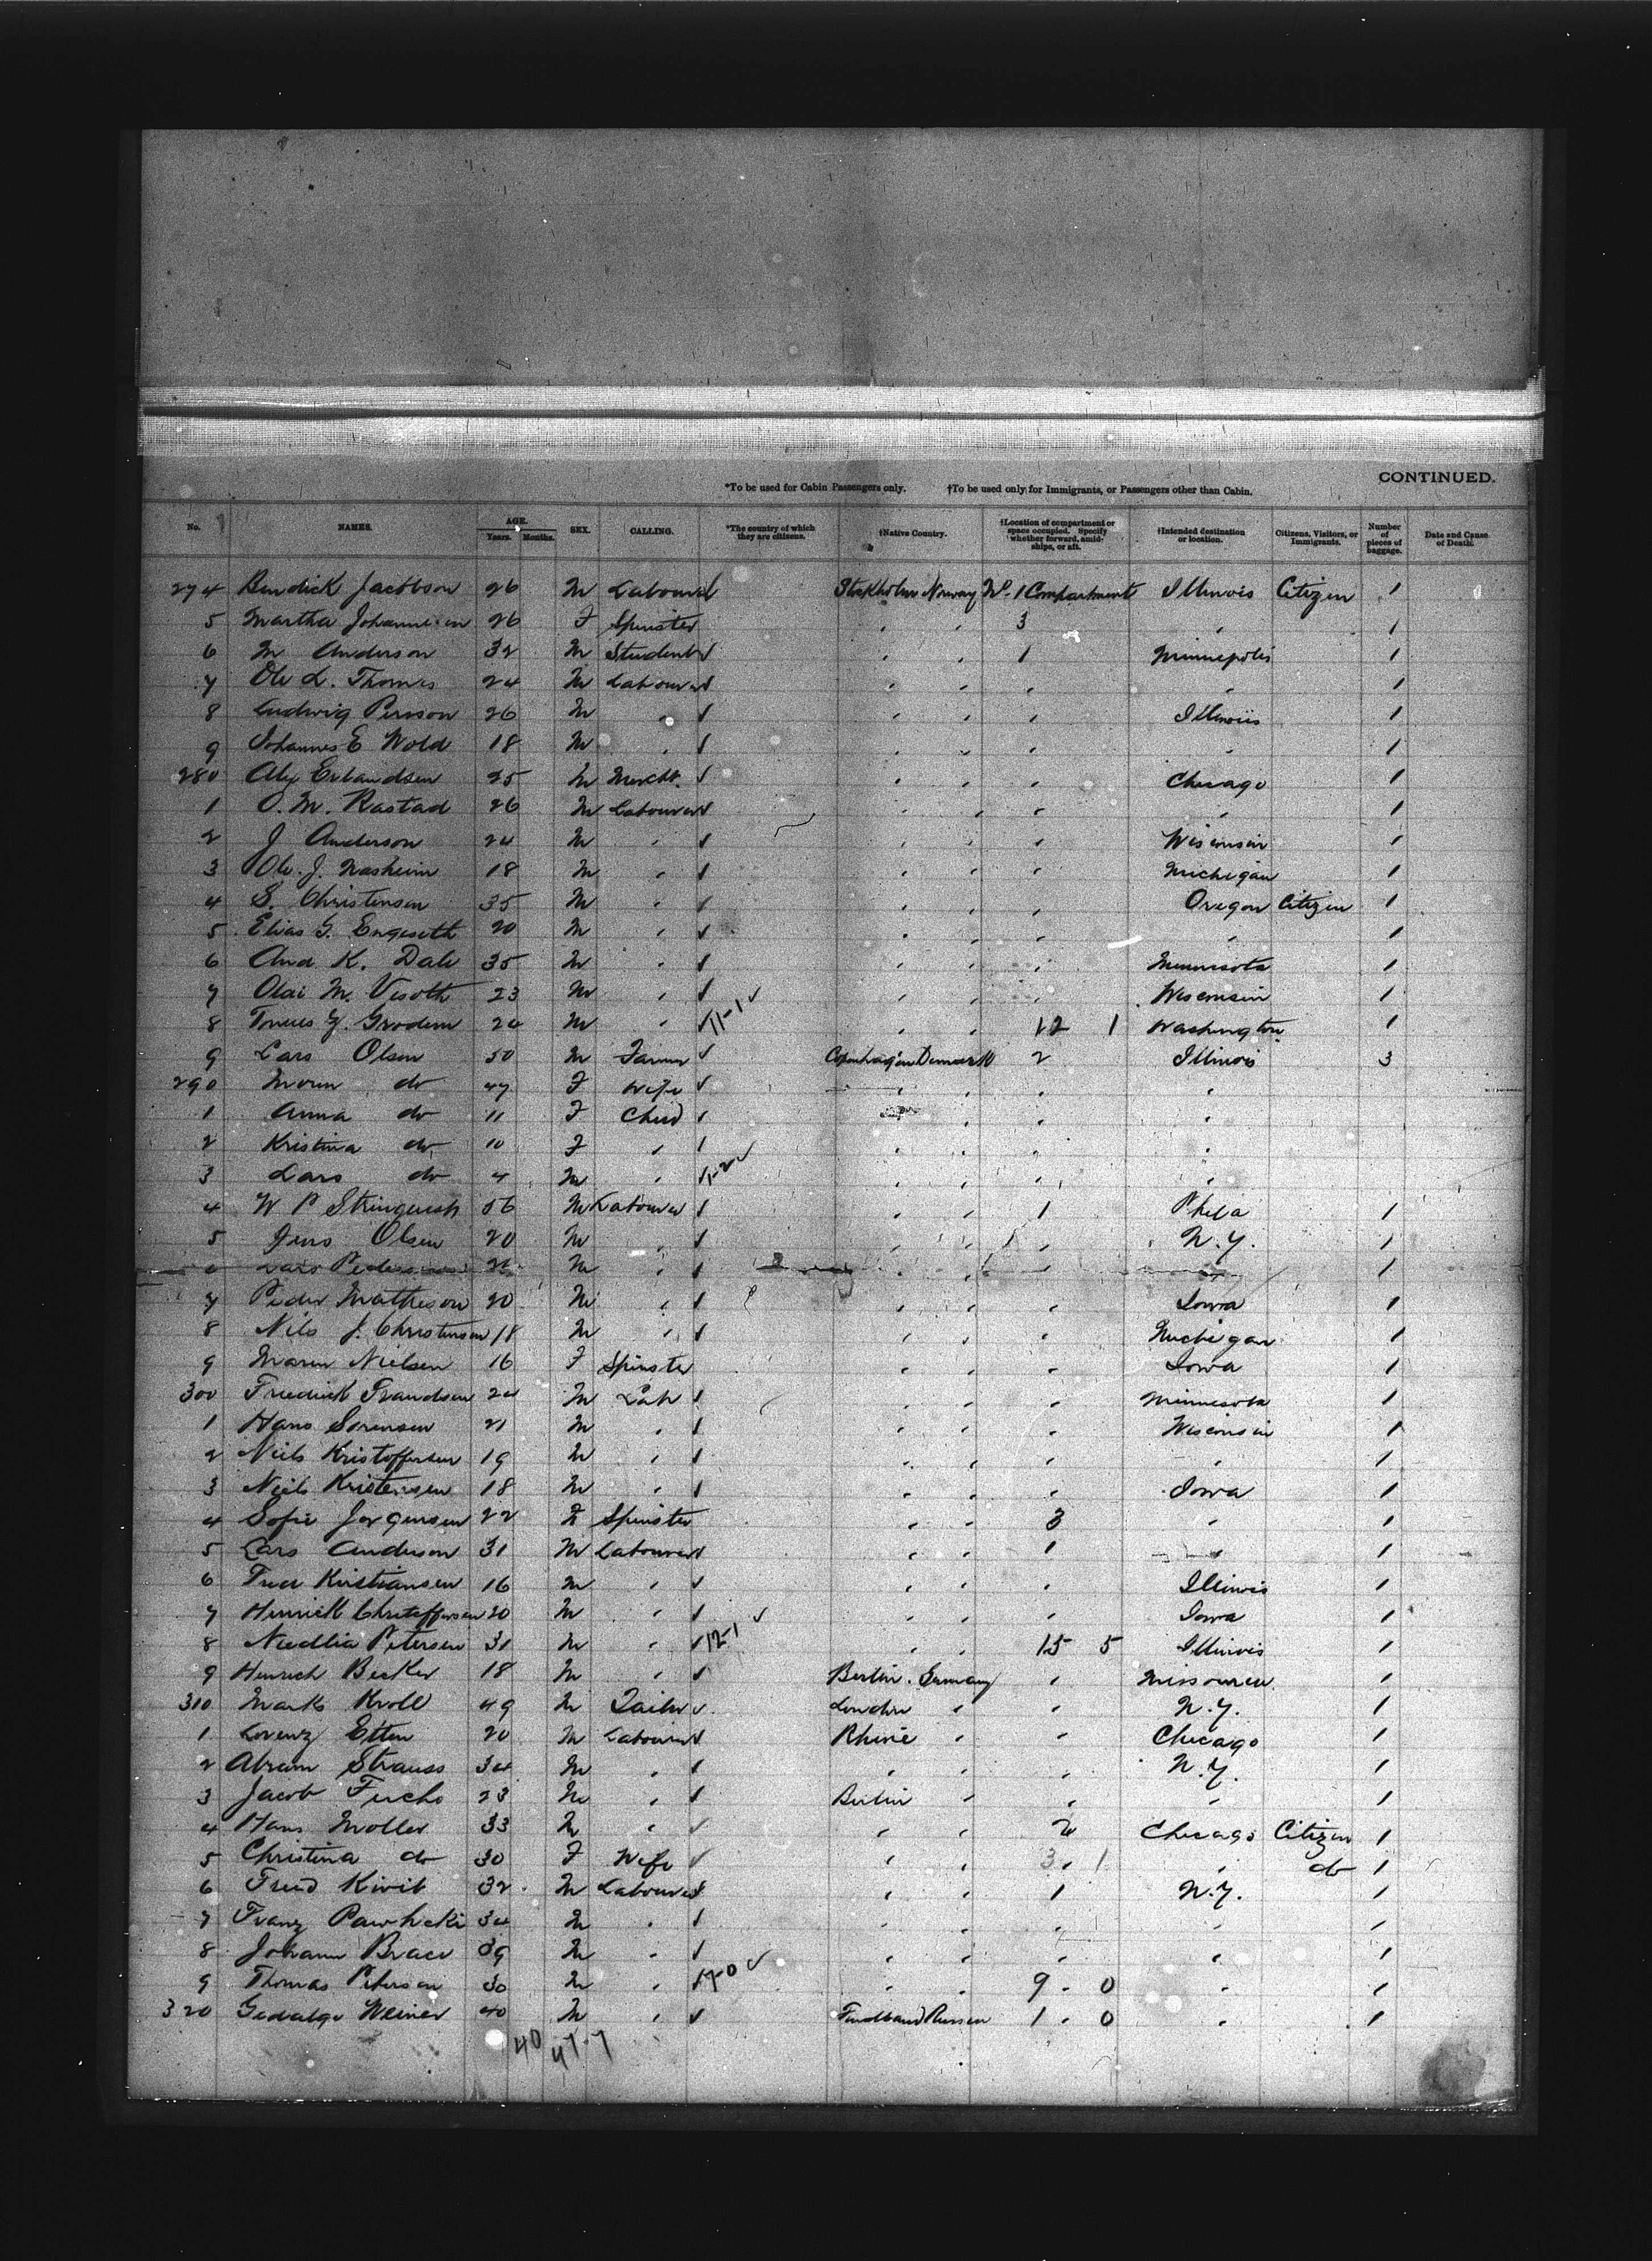 CONTINUED.
*To be used for Cabin Passengers only. †To be used only for Immigrants, or Passengers other than Cabin.
No. NAMES. AGE. Years. Months. SEX. CALLING. *The country of which they are citizens. †Native Country. †Location of compartment or space occupied. Specify whether forward, amidships, or aft. †Intended destination or location. Citizens, Visitors, or Immigrants. Number of pieces of baggage. Date and Cause of Death.
274 Bendick Jacobson 26 M Labourer Stockholm Norway No. 1 Compartment Illinois Citizen 1
5 Martha Johannesen 26 F Spinster " " 3 " 1
6 M Anderson 32 M Student " " 1 Minnepolis 1
7 Ole L. Thomas 24 M Labourer " " " " 1
8 Ludwig Persson 26 M " " " " Illinois 1
9 Johannes E Wold 18 M " " " " " 1
280 Alex Erlandsen 25 M Mercht. " " " Chicago 1
1 O. M. Rastad 26 M Labourer " " " " 1
2 J Anderson 24 M " " " " Wisconsin 1
3 Ole. J. Nasheim 18 M " " " " Michigan 1
4 S. Christensen 35 M " " " " Oregon Citizen 1
5 Elias G. Engeseth 20 M " " " " " 1
6 And K. Dale 35 M " " " " Minnesota 1
7 Olai M. Vesoth 23 M " " " " Wisconsin 1
8 Grodem 24 M " 11-1 " " 12 1 Washington 1
9 Lars Olsen 50 M Farmer Copenhagen Denmark 2 Illinois 3
290 Maren do 47 F Wife " " " "
1 Anna do 11 F Child " " "
2 Kristina do 10 F " " " " "
3 Lars do 4 M " 11-2 " " " "
4 W P 56 M Labourer " " 1 Phila 1
5 Jens Olsen 20 M " " " " N.Y. 1
6 Lars Pedersen 26 M " " 1
7 Peder Matheson 20 M " " " " Iowa 1
8 Nils J. Christensen 18 M " " " " Michigan 1
9 Maren Nielsen 16 F Spinster " " " Iowa 1
300 Fredrick Frandsen 24 M Lab " " " Minnesota 1
1 Hans Sorensen 21 M " " " " Wisconsin 1
2 Niels Kristoffersen 19 M " " " " " 1
3 Niels Kristensen 18 M " " " " Iowa 1
4 Sofie Jorgensen 22 F Spinster " " 3 " 1
5 Lars Anderson 31 M Labourer " " 1 " 1
6 Fred Kristiansen 16 M " " " " Illinois 1
7 Henrick Christoffersen 20 M " " " " Iowa 1
8 Petersen 31 M " 12-1 " " 15 5 Illinois 1
9 Henrich Becker 18 M " Berlin. Germany " Missouri 1
310 Marks Kroll 49 M Tailor London " " N.Y. 1
1 Lorenz Etten 20 M Labourer Rhine " " Chicago 1
2 Abram Strauss 34 M " " " " N.Y. 1
3 Jacob Fuchs 23 M " Berlin " " " 1
4 Hans Moller 33 M " " " 2 Chicago Citizen 1
5 Christina do 30 F Wife " " 3. 1 " do 1
6 Fred Kivit 32 M Labourer " " 1 N.Y. 1
7 Franz 34 M " " " " " 1
8 Johann Brace 39 M " " " " " 1
9 Thomas Peterson 30 M " 17-0 " " 9 - 0 " 1
320 Gedalge Weiner 40 M " Russia 1 - 0 " 1
40 47-7